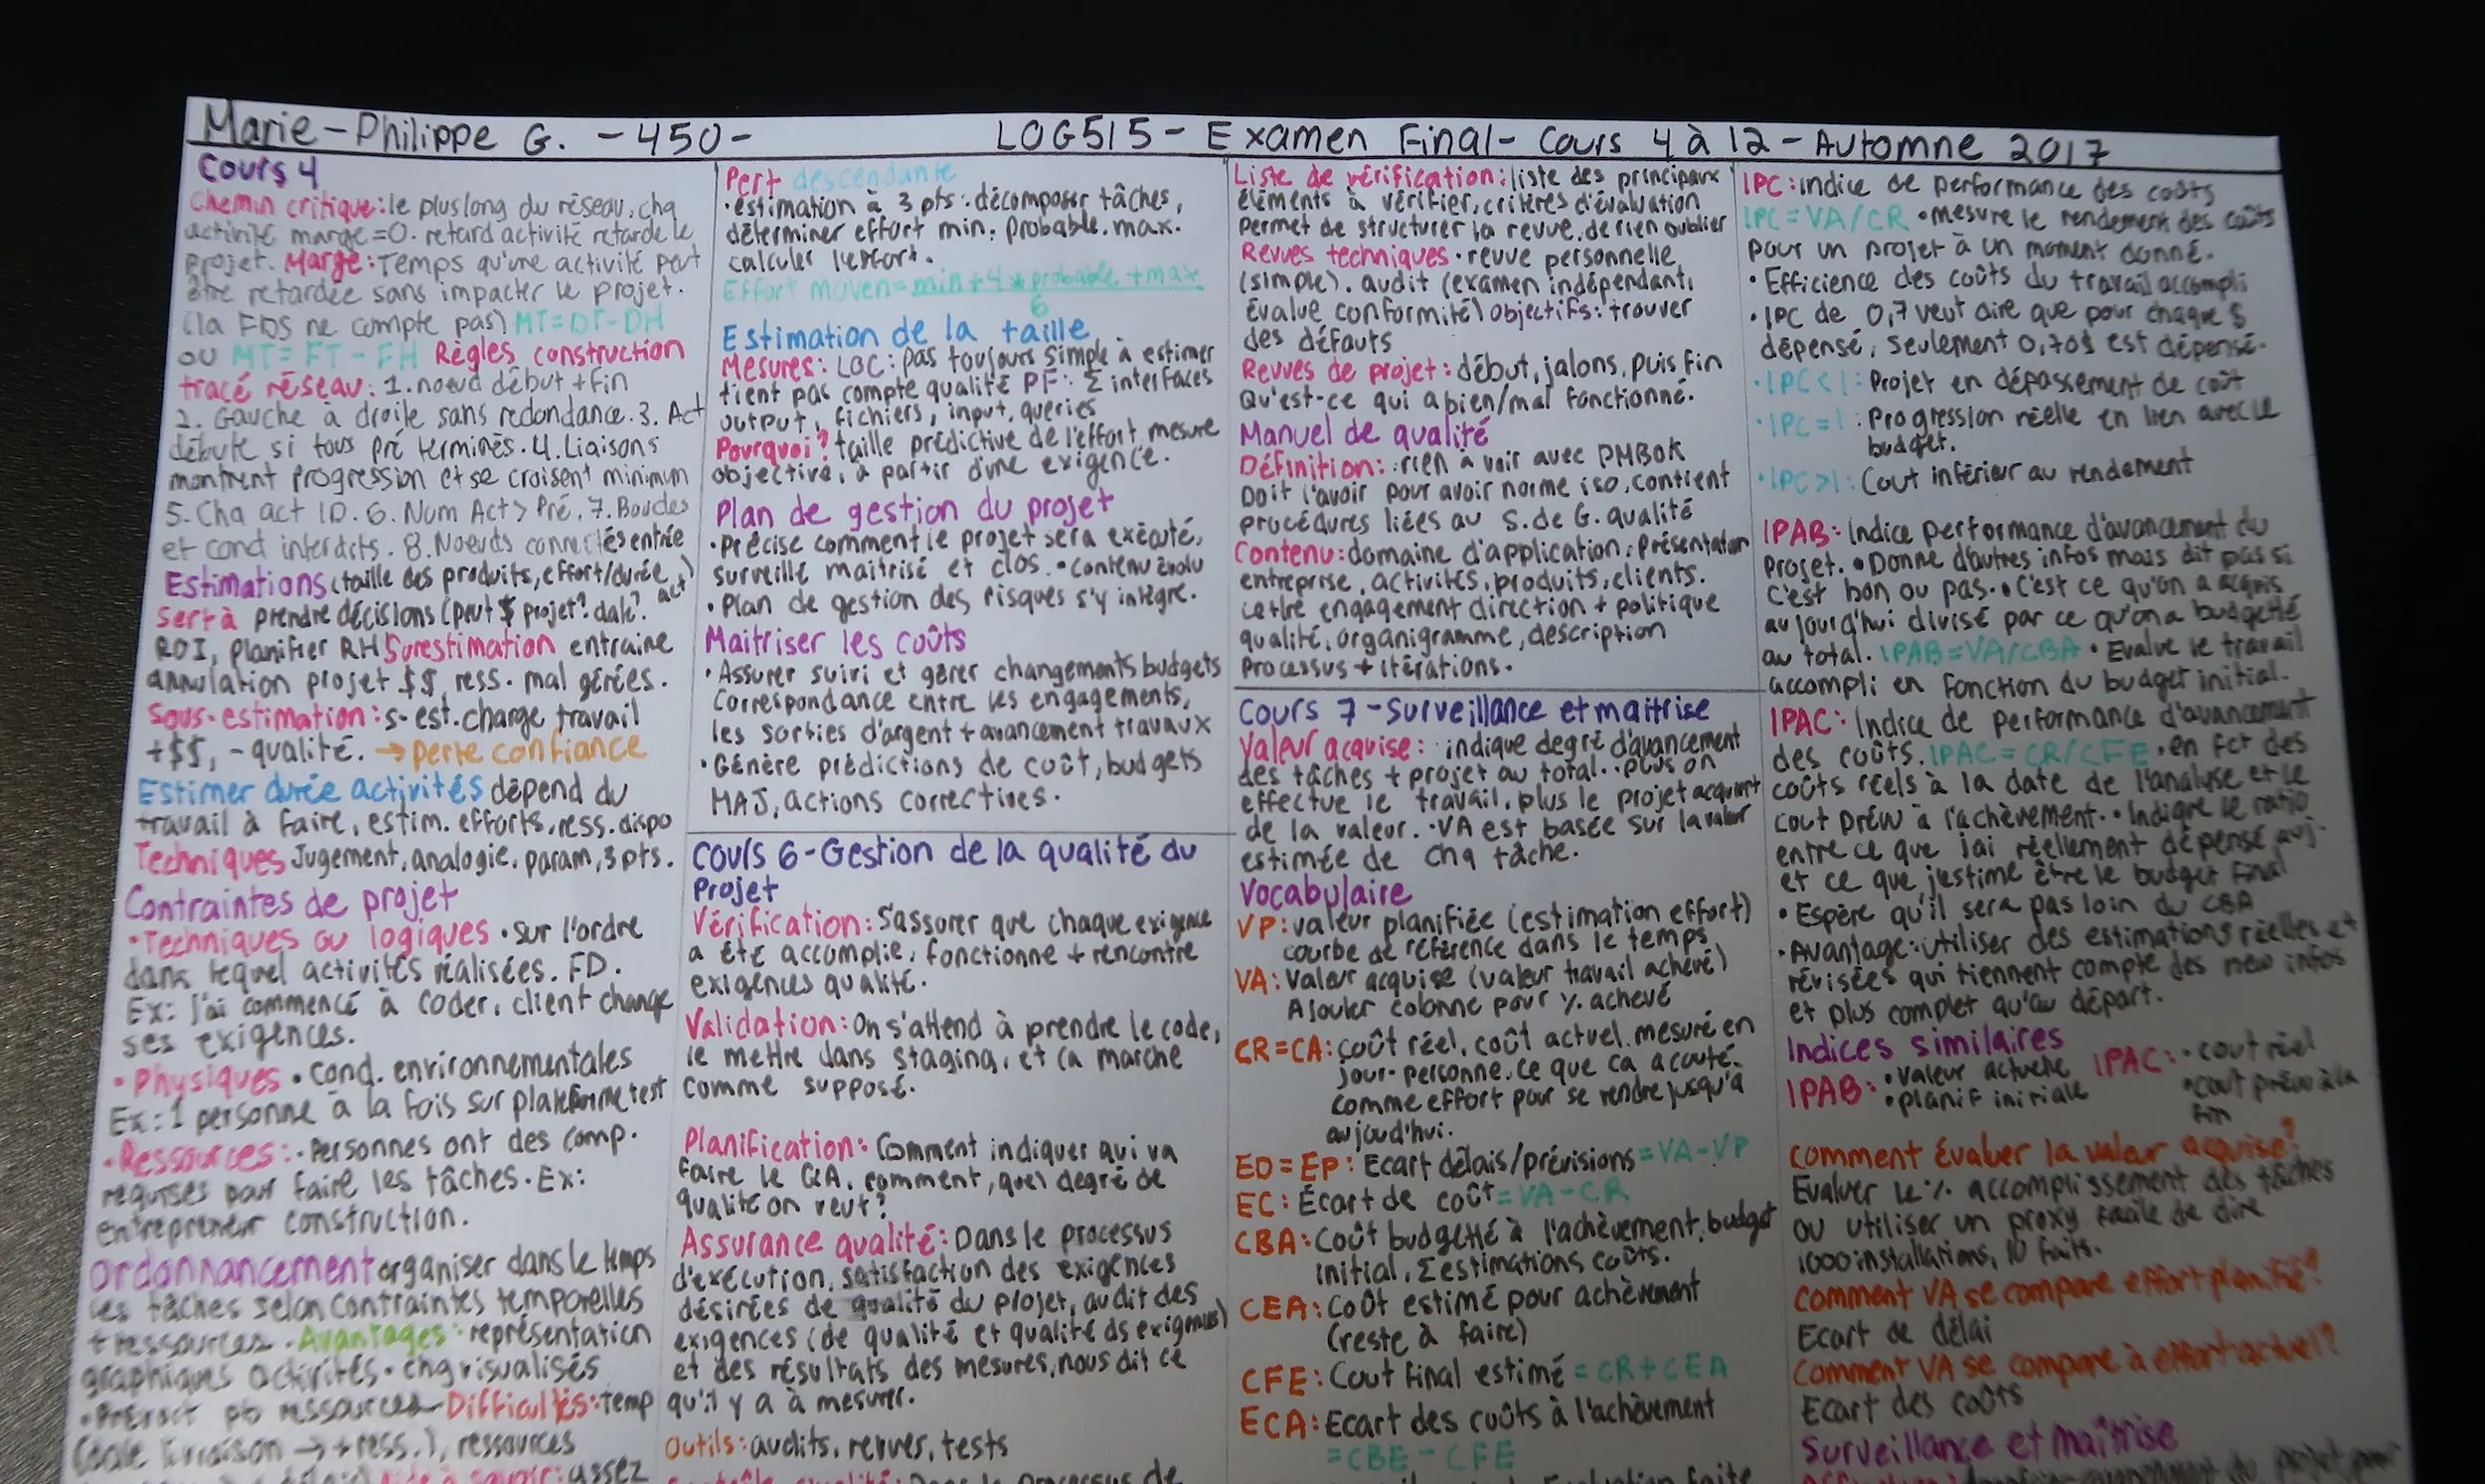 Marie-Philippe G. - 450-
LOG515 - Examen Final - Cours 4 à 12 - Automne 2017
Cours 4
Chemin critique: le plus long du réseau, chq
activité marge=0. retard activité retarde le
projet. Marge: Temps qu'une activité peut
être retardée sans impacter le projet.
(la FDS ne compte pas) MT=DT-DH
ou MT= FT - FH Règles construction
tracé réseau: 1. noeud début + fin
2. Gauche à droite sans redondance. 3. Act
débute si tous pré terminés. 4. Liaisons
montrent progression et se croisent minimum
5. Chq act ID. 6. Num Act > Pré. 7. Boucles
et cond interdits. 8. Noeuds connectés entrée
Estimations (taille des produits, effort/durée act)
Sert à prendre décisions (peut $ projet? date?
ROI, planifier RH Surestimation entraine
annulation projet $$, ress. mal gérées.
Sous-estimation: s-est. charge travail
+$$, - qualité. → perte confiance
Estimer durée activités dépend du
travail à faire, estim. efforts, ress. dispo
Techniques Jugement, analogie, param, 3 pts.
Contraintes de projet
• Techniques ou logiques • sur l'ordre
dans lequel activités réalisées. FD.
Ex: J'ai commencé à coder, client change
ses exigences.
• Physiques • Cond. environnementales
Ex: 1 personne à la fois sur plateforme test
• Ressources: • Personnes ont des comp.
requises pour faire les tâches. Ex:
entrepreneur construction.
Ordonnancement organiser dans le temps
les tâches selon contraintes temporelles
+ ressources. Avantages: représentation
graphiques activités. visualisés
pb ressources Difficultés: temp
livraison → + ress.), ressources
assez
Pert descendante
• estimation à 3 pts: décomposer tâches,
déterminer effort min. probable. max.
calculer l'effort.
Effort moyen = min + 4 * probable + max
6
Estimation de la taille
Mesures: LOC: pas toujours simple à estimer
tient pas compte qualité PF: Σ interfaces
output, fichiers, input, queries
Pourquoi? taille prédictive de l'effort, mesure
objective, à partir d'une exigence.
Plan de gestion du projet
• Précise comment le projet sera exécuté,
surveillé maitrisé et clos. • contenu évolu
• Plan de gestion des risques s'y intègre.
Maitriser les coûts
• Assurer suivi et gérer changements budgets
Correspondance entre les engagements,
les sorties d'argent + avancement travaux
• Génère prédictions de coût, budgets
MAJ, actions correctives.
Cours 6 - Gestion de la qualité du
Projet
Vérification: S'assurer que chaque exigence
a été accomplie, fonctionne + rencontre
exigences qualité.
Validation: On s'attend à prendre le code,
le mettre dans staging, et ca marche
comme supposé.
Planification: Comment indiquer qui va
faire le QA, comment, quel degré de
qualité on veut?
Assurance qualité: Dans le processus
d'exécution, satisfaction des exigences
désirées de qualité du projet, audit des
exigences (de qualité et qualité ds exigences)
et des résultats des mesures, nous dit ce
qu'il y a à mesurer.
Outils: audits, revues, tests
Dans le processus de
Liste de vérification: liste des principaux
éléments à vérifier, critères d'évaluation
Permet de structurer la revue, de rien oublier
Revues techniques • revue personnelle
(simple). audit (examen indépendant,
évalue conformité) Objectifs: trouver
des défauts
Revues de projet: début, jalons, puis fin
Qu'est-ce qui a bien/mal fonctionné.
Manuel de qualité
Définition: rien à voir avec PMBOK
Doit l'avoir pour avoir norme iso, contient
procédures liées au S. de G. qualité
Contenu: domaine d'application, Présentation
entreprise, activités, produits, clients.
Lettre engagement direction + politique
qualité, organigramme, description
Processus + itérations.
Cours 7 - Surveillance et maitrise
Valeur acquise: indique degré d'avancement
des tâches + projet au total. • plus on
effectue le travail, plus le projet acquiert
de la valeur. • VA est basée sur la valeur
estimée de chq tâche.
Vocabulaire
VP: valeur planifiée (estimation effort)
courbe de référence dans le temps
VA: Valeur acquise (valeur travail achevé)
Ajouter colonne pour % achevé
CR=CA: coût réel, coût actuel mesuré en
jour-personne. ce que ca a couté.
comme effort pour se rendre jusqu'à
aujourd'hui.
ED = EP: Ecart délais/prévisions = VA-VP
EC: Écart de coût = VA - CR
CBA: Coût budgetté à l'achèvement, budget
initial, Σ estimations coûts.
CEA: Coût estimé pour achèvement
(reste à faire)
CFE: Cout final estimé = CR + CEA
ECA: Ecart des coûts à l'achèvement
= CBE - CFE
Evaluation faite
IPC: indice de performance des coûts
IPC = VA/CR • mesure le rendement des coûts
pour un projet à un moment donné.
• Efficience des coûts du travail accompli
• IPC de 0,7 veut dire que pour chaque $
dépensé, seulement 0,70$ est dépensé.
• IPC<1: Projet en dépassement de coût
• IPC=1: Progression réelle en lien avec le
budget.
• IPC>1: Cout inférieur au rendement
IPAB: Indice performance d'avancement du
projet. • Donne d'autres infos mais dit pas si
c'est bon ou pas. • C'est ce qu'on a acquis
aujourd'hui divisé par ce qu'on a budgetté
au total. IPAB=VA/CBA • Evalue le travail
accompli en fonction du budget initial.
IPAC: Indice de performance d'avancement
des coûts. IPAC = CR/CFE • en fct des
coûts réels à la date de l'analyse et le
cout prévu à l'achèvement. • Indique le ratio
entre ce que j'ai réellement dépensé auj.
et ce que j'estime être le budget final
• Espère qu'il sera pas loin du CBA
• Avantage: utiliser des estimations réelles et
révisées qui tiennent compte des new infos
et plus complet qu'au départ.
Indices similaires
IPAB: • valeur actuelle IPAC: • cout réel
• planif initiale • cout prévu à la
fin
Comment évaluer la valeur acquise?
Evaluer le % accomplissement des tâches
ou utiliser un proxy facile de dire
1000 installations, 10 faits.
Comment VA se compare effort planifié?
Ecart de délai
Comment VA se compare à effort actuel?
Ecart des coûts
Surveillance et maîtrise